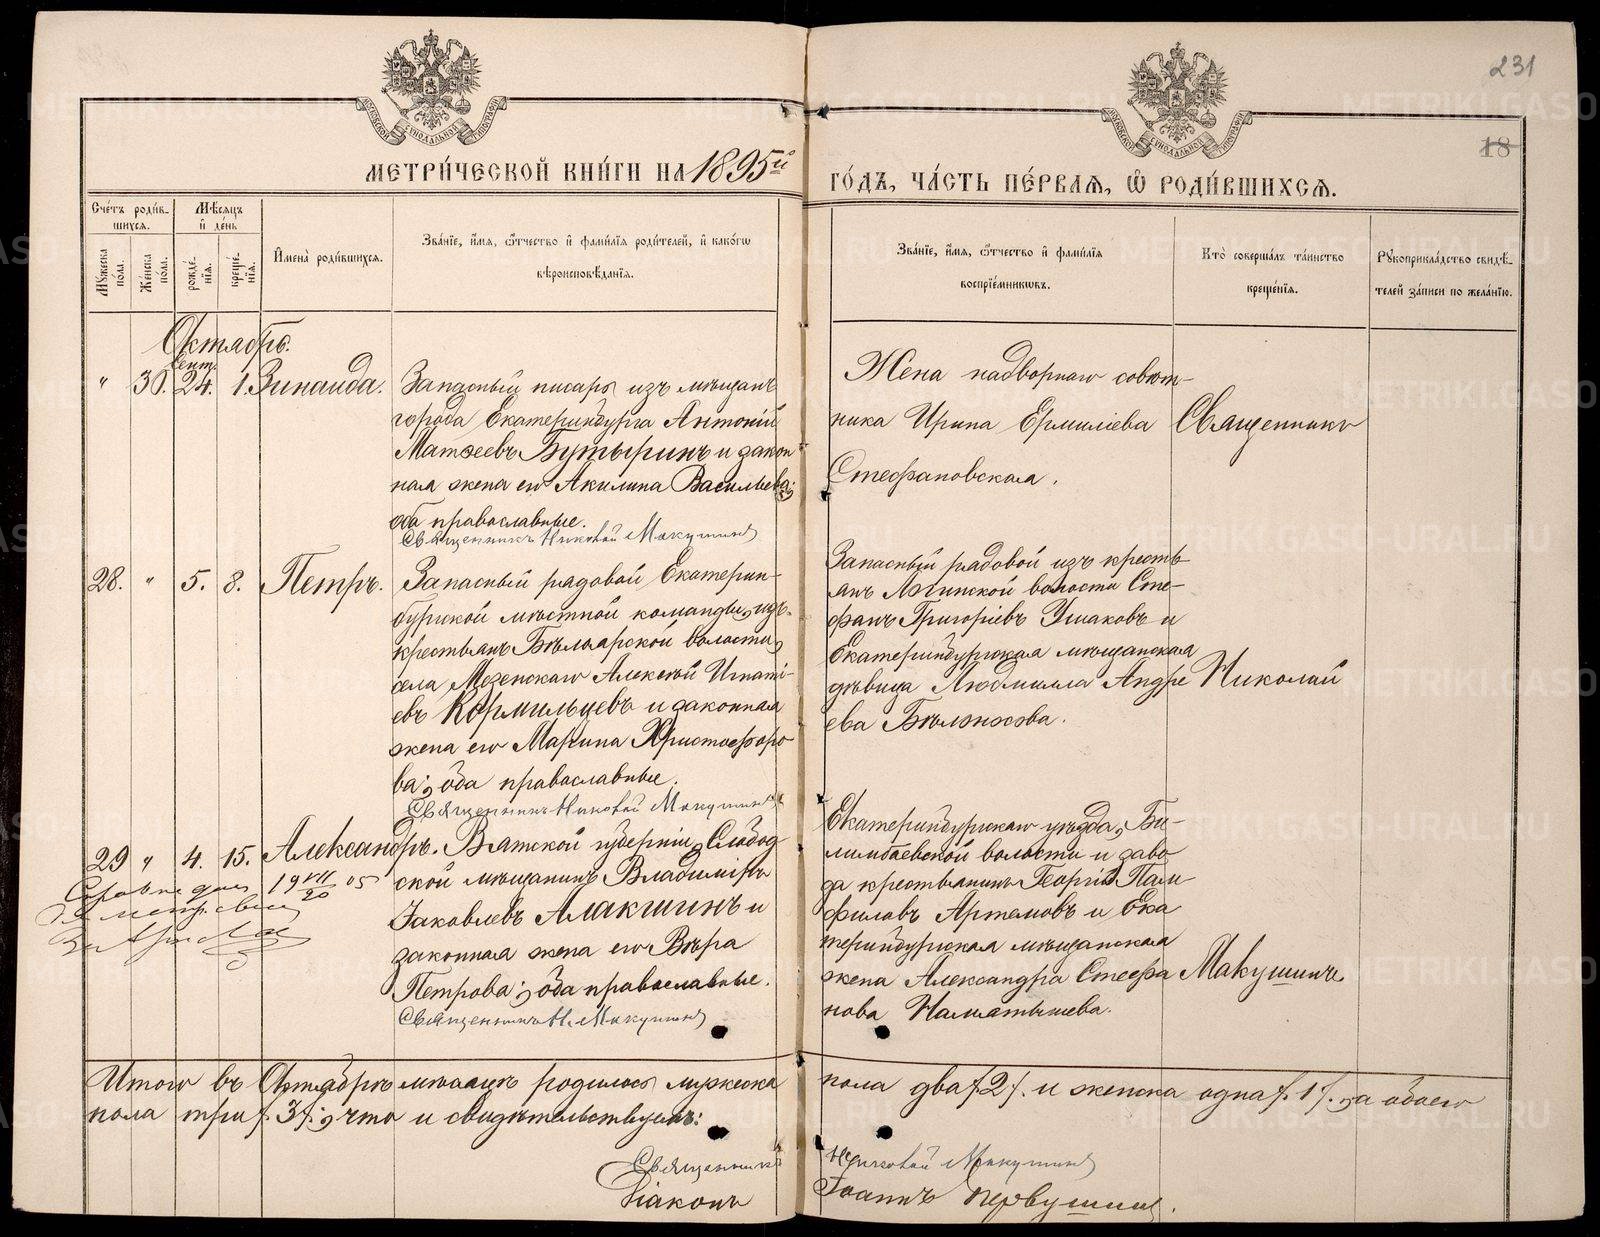 231
18
МЕТРИ́ЧЕСКОЙ КНИ́ГИ НА 1895й
ГО́ДЪ, ЧА́СТЬ ПЕ́РВАЯ, Ѽ РОДИ́ВШИХСЯ.
Сче́тъ роди́в-
шихся.
Мѣ́сяцъ
и҆ де́нь
Му́жеска
пола.
Же́нска
пола.
рожде́-
нїя.
креще́-
нїя.
И҆мена̀ роди́вшихся.
Зва́нїе, и҆́мя, ѻ҆́тчество и҆ фами́лїя роди́телей, и҆ како́гѡ
вѣроисповѣ́данїя.
Зва́нїе, и҆́мя, ѻ҆́тчество и҆ фами́лїя
воспрїе́мникѡвъ.
Кто̀ соверша́лъ та́инство
креще́нїя.
Рꙋкоприкла́дство свидѣ́-
телей за́писи по жела́нїю.
Октябрь.
Сент.
" 30. 24. 1. Зинаида.
Запасный писарь изъ мѣщанъ
города Екатеринбурга Антоній
Матѳеевъ Бутыринъ и закон
ная жена его Акилина Васильева;
оба православные.
Священникъ Николай Макушинъ
Жена надворнаго совѣт-
ника Ирина Ермиліева
Стефановская.
Священникъ
28. " 5. 8. Петръ.
Запасный рядовой Екатерин-
бургской мѣстной команды, изъ
крестьянъ Бѣлоярской волости,
села Мезенскаго Алексѣй Игнатi-
евъ Кормильцевъ и законная
жена его Марина Христофоро-
ва; оба православные.
Священникъ Николай Макушинъ
Запасный рядовой изъ кресть
янъ волости Сте-
фанъ Григоріевъ Ушаковъ и
Екатеринбургская мѣщанская
дѣвица Людмилла Андре
ева Бѣлоносова.
Николай
29 " 4. 15. Александръ.
19 VII/20 05
Вятской губерніи, Слобод
ской мѣщанинъ Владиміръ
Іаковлевъ Алакшинъ и
законная жена его Вѣра
Петрова; оба православные.
Священникъ Н. Макушинъ
Екатеринбургскаго уѣзда, Би-
лимбаевской волости и заво
да крестьянинъ Георгій Пам-
филовъ Артемовъ и Ека
теринбургская мѣщанская
жена Александра Стефа
нова
Макушинъ.
Итого въ Октябрѣ мѣсяцѣ родилось мужеска
пола два /2/. и женска одна /1/., а обоего
пола три /3/; что и свидѣтельствуемъ:
Священникъ
Николай Макушинъ
Діаконъ
Іоаннъ Первушинъ.